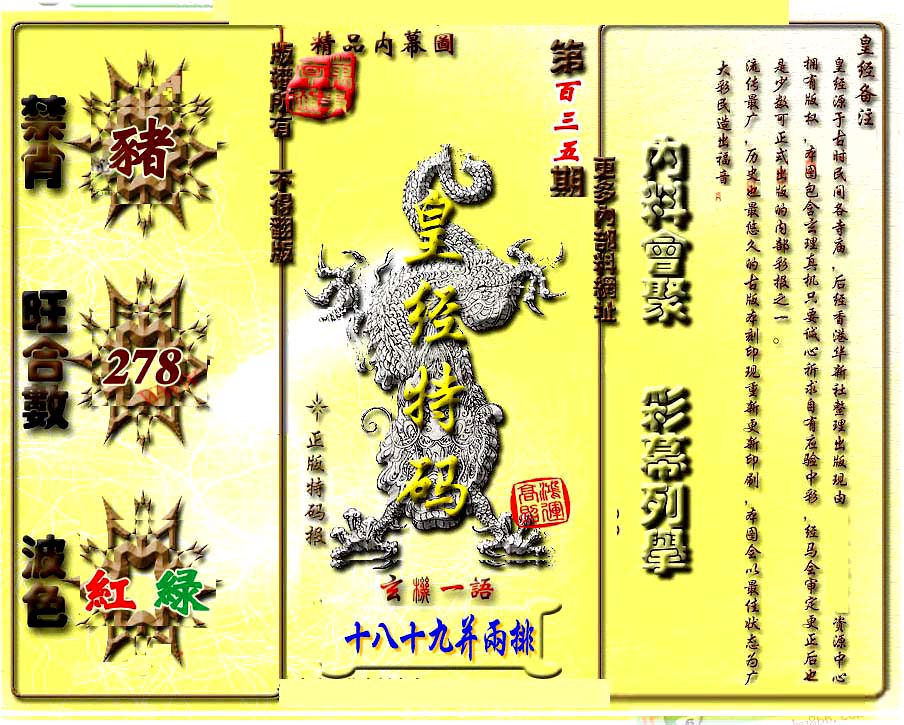 皇经备注
皇经源于古时民间各寺庙，后经香港华新社整理出版现由　资源中心
拥有版权，本图包含玄理真机只要诚心祈求自有应验中彩，经马会审定更正后也
是少数可正式出版的内部彩报之一。
流传最广，历史也最悠久的古版本刻印现重新更新印刷，本图会以最佳状态为广
大彩民造出福音
内料會聚
彩幕列舉
更多內部料網址
精品内幕圖
第百三五期
版權所有
不得翻版
皇经特码
正版特码报
鴻運
高照
玄機一語
十八十九并兩排
禁肖
豬
旺合數
278
波色
紅 綠